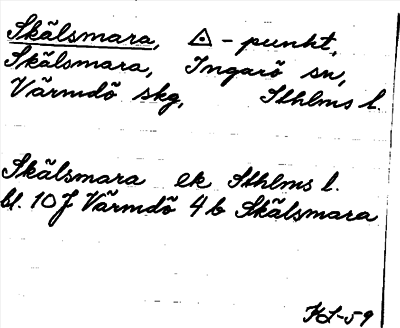 Skälsmara, △ - punkt,
Skälsmara, Ingarö sn,
Värmdö skg, Sthlms l.
Skälsmara ek Sthlms l.
bl. 10 J Värmdö 4 b Skälsmara
KL-59